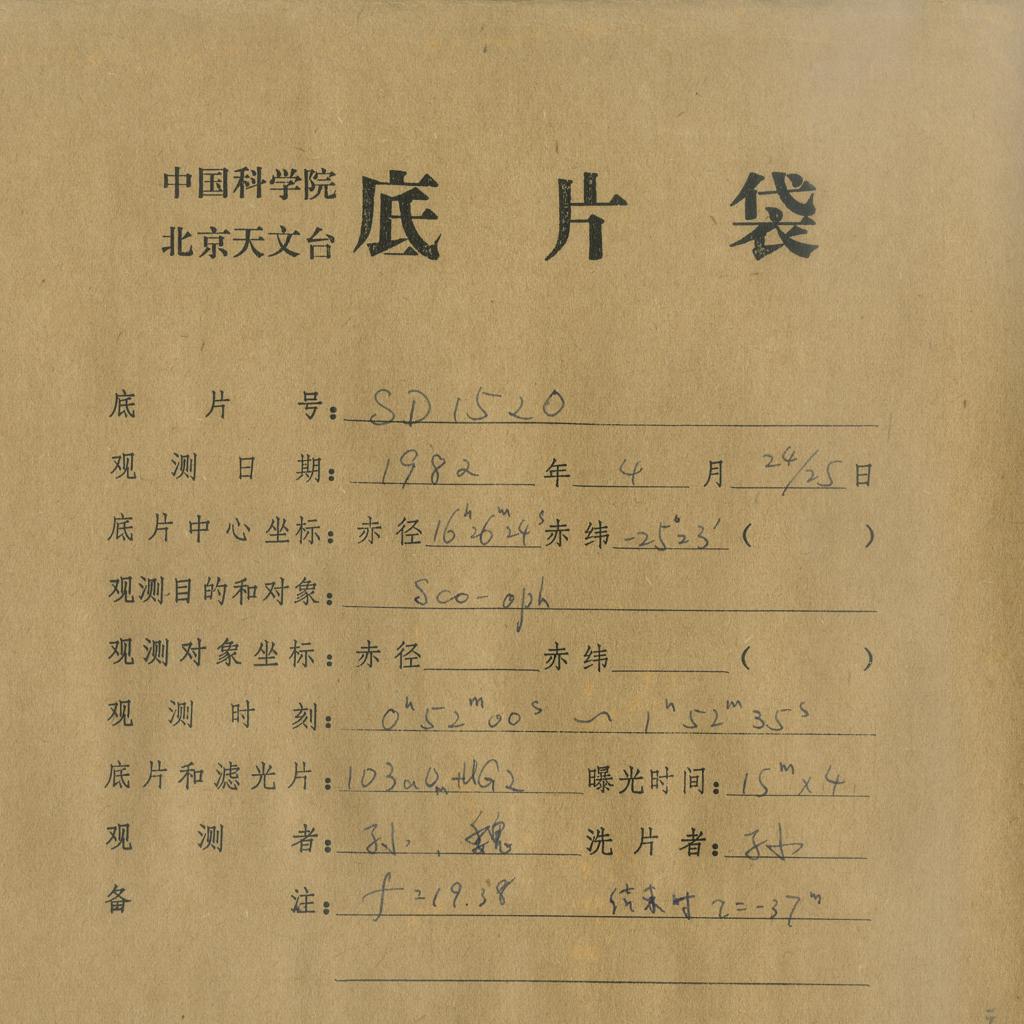 中国科学院
北京天文台
底片袋
底片号：SD1520
观测日期：1982年4月24/25日
底片中心坐标：赤径16ʰ26ᵐ24ˢ赤纬-25°23′（ ）
观测目的和对象：Sco-oph
观测对象坐标：赤径 赤纬 （ ）
观测时刻：0ʰ52ᵐ00ˢ ~ 1ʰ52ᵐ35ˢ
底片和滤光片：103aO + UG2 曝光时间：15ᵐ×4
观测者：孙、魏 洗片者：孙
备注：f=19.38 结束时 τ=-37ᵐ